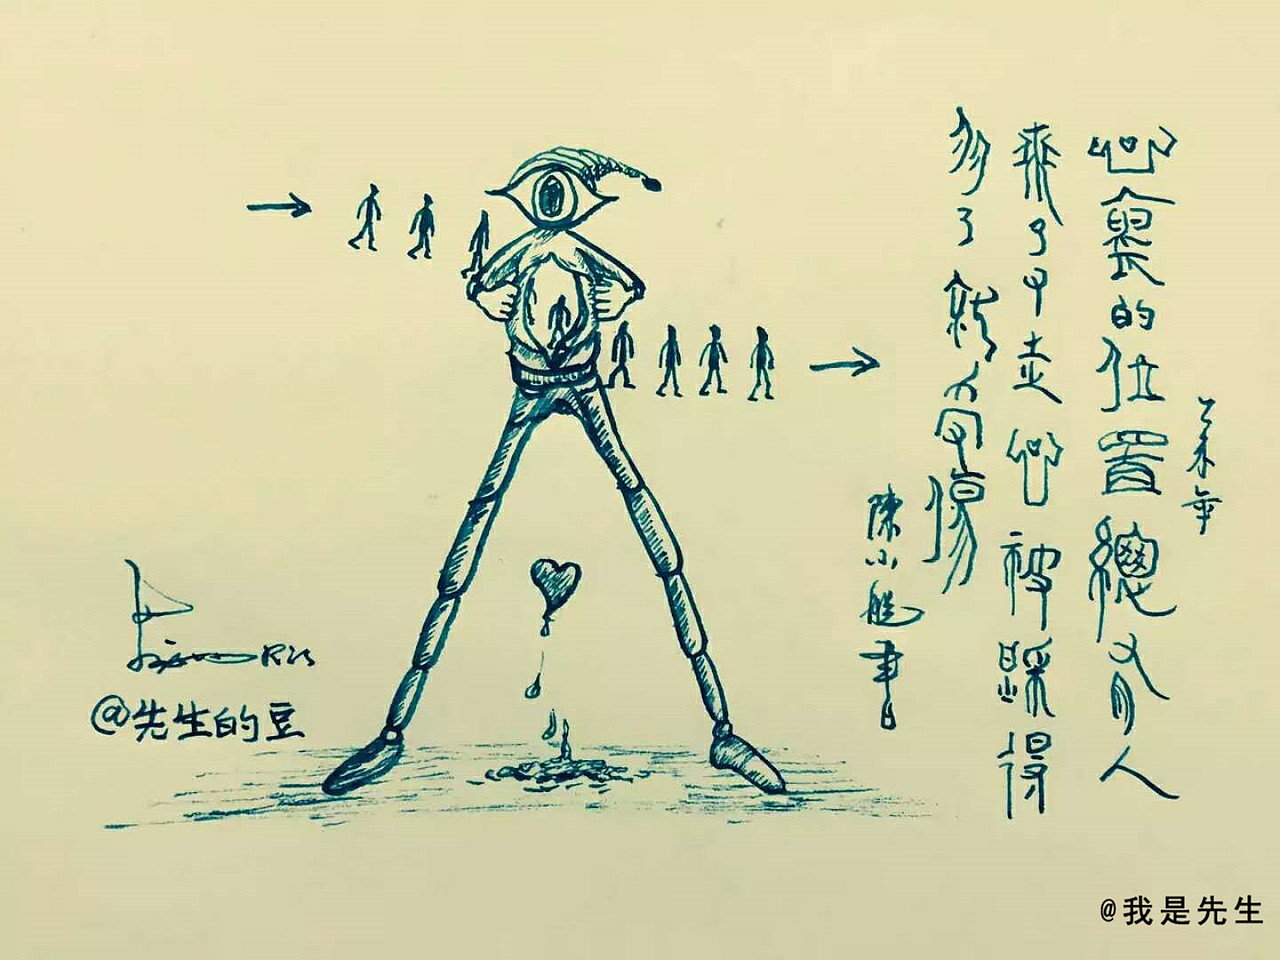 乙未年
心裏的位置總有人
來了又走心被踩得
多了就受傷
陳小書
@先生的豆
@我是先生